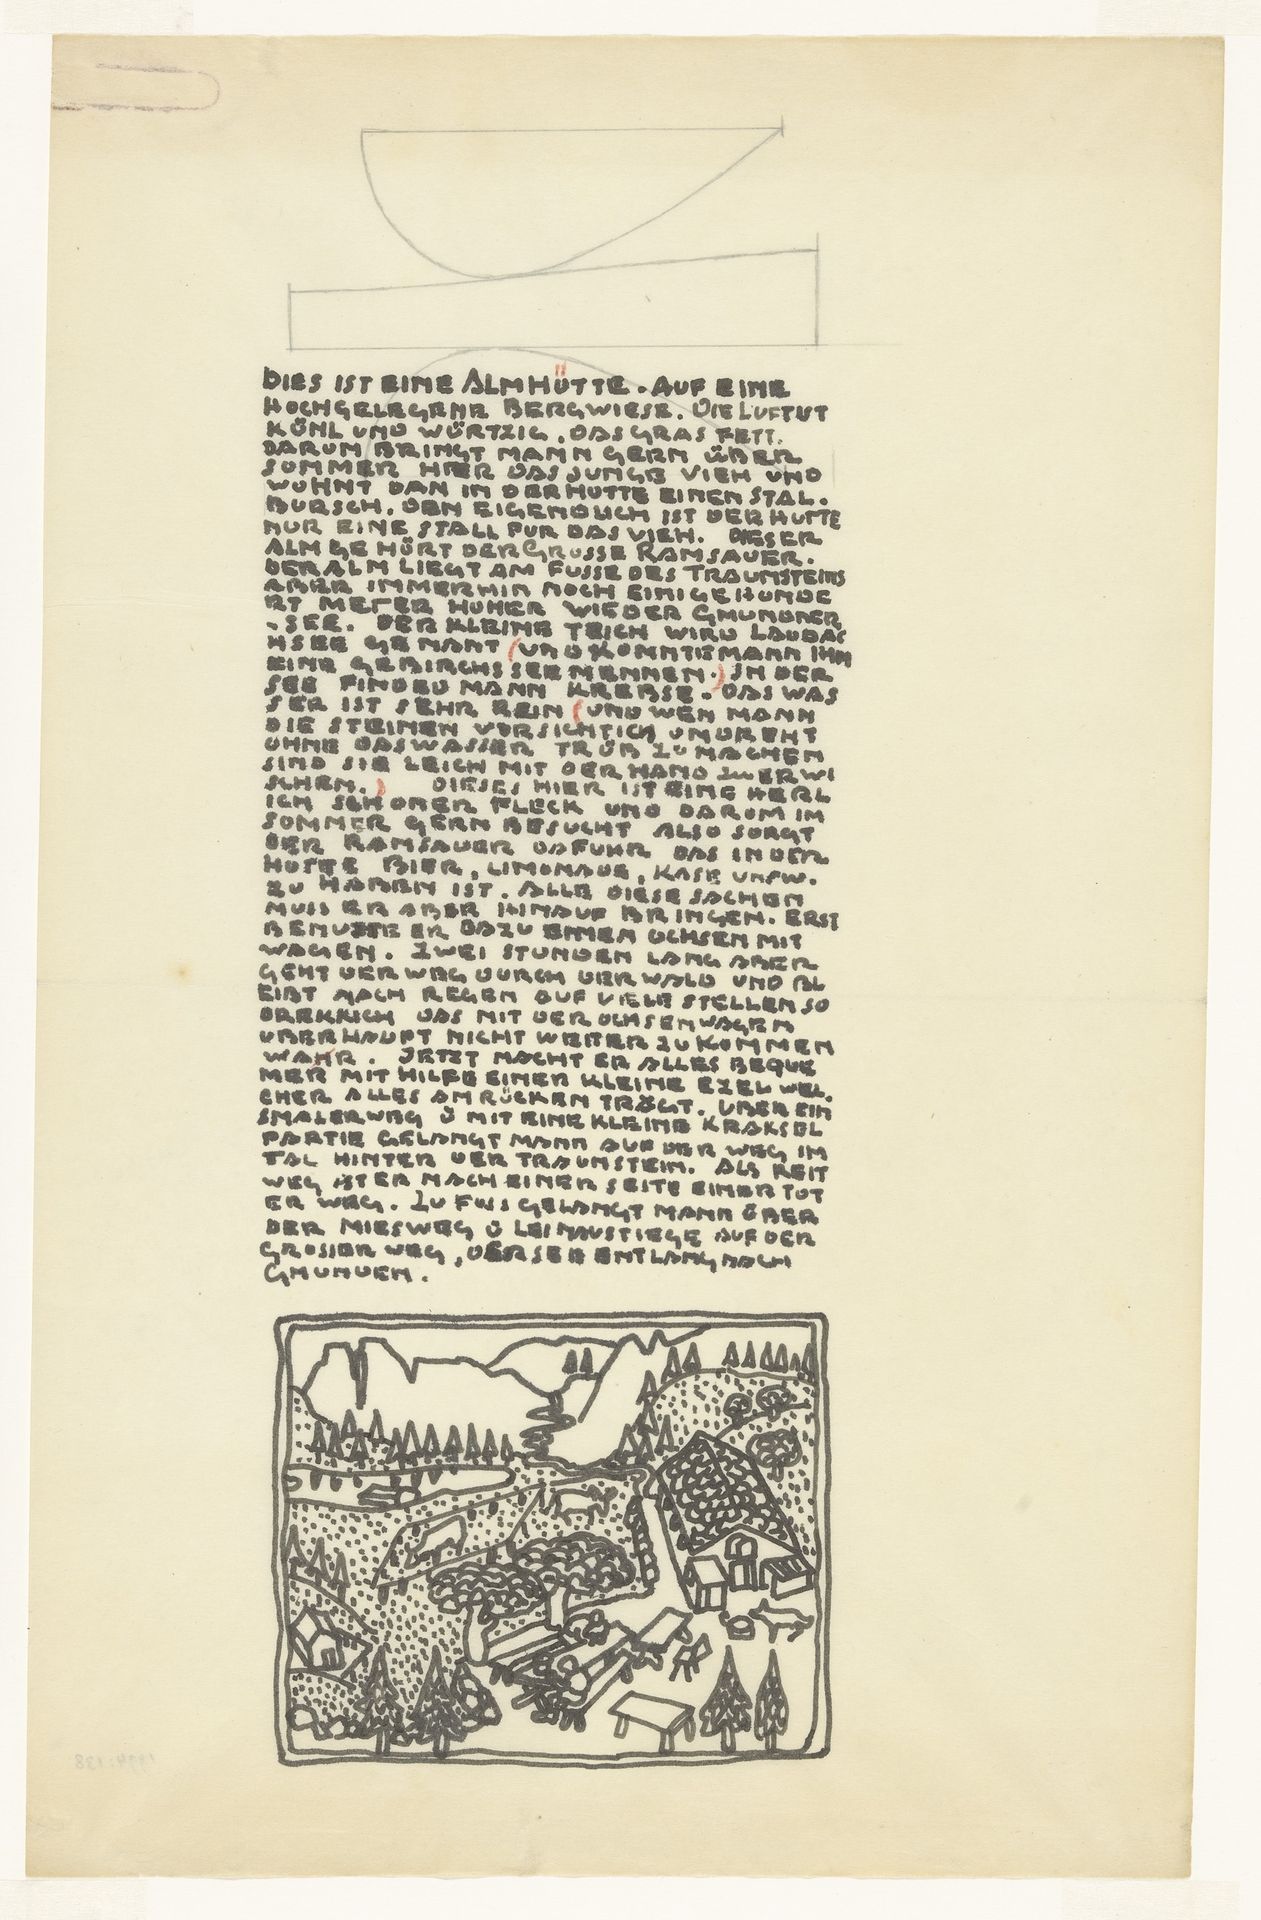 DIES IST EINE ALMHÜTTE. AUF EINE
HOCHGELEGENE BERGWIESE. DIE LUFT UT
KÖHL UND WÜRTZIG, DAS GRAS FETT.
DARUM BRINGT MANN GERN ÜBER
SOMMER HIER DAS JUNGE VIEH UND
WOHNT DAN IN DER HUTTE EINEN STAL.
BURSCH. DEN EIGENDLICH IST DER HUTTE
NUR EINE STALL FUR DAS VIEH. DIESER
ALM GEHÖRT DER GROSSE RAMSAUER.
DER ALM LIEGT AM FUSSE DES TRAUMSTEINS
ABER IMMERHIN NOCH EINIGE HUNDE
RT METER HOHER WIE DER GMUNDNER
-SEE. DER KLEINE TEICH WIRD LAUDAC
HSEE GENANT (UND KONNTE MANN IHN
EINE GEBIRCHSSEE NENNEN.) IN DER
SEE FINDED MANN KREBSE. DAS WAS
SER IST SEHR REIN (UND WEN MANN
DIE STEINEN VORSICHTICH UMDREHT
OHNE DAS WASSER TRÜB ZU MACHEN
SIND SIE LEICH MIT DER HAND ZU ERWI
SCHEN.) DIESES HIER IST EINE HERL
ICH SCHONER FLECK UND DARUM IM
SOMMER GERN BESUCHT ALSO SORGT
DER RAMSAUER DAFUHR DAS IN DER
HUTTE BIER, LIMONADE, KASE UNSW.
ZU HABEN IST. ALLE DIESE SACHEN
MUSS ER ABER HINAUF BRINGEN. ERST
BENUTZTE ER DAZU EINEN OCHSEN MIT
WAGEN. ZWEI STUNDEN LANG ABER
GEHT DER WEG DURCH DER WALD UND BL
EIBT NACH REGEN AUF VIELE STELLEN SO
DREKKICH DAS MIT DER OCHSENWAGEN
UBERHAUPT NICHT WEITER ZU KOMMEN
WAHR. JETZT MACHT ER ALLES BEQUE
MER MIT HILFE EINER KLEINE EZEL WEL.
CHER ALLES AM RÜCKEN TRÄGT. UBER EIN
SMALER WEG Ü MIT EINE KLEINE KRAKSEL
PARTIE GELANGT MANN AUF DER WEG IM
TAL HINTER DER TRAUMSTEIN. ALS REIT
WEG IST ER NACH EINER SEITE EINER TOT
ER WEG. ZU FUSS GELANGT MANN ÜBER
DER MIESWEG Ü LEINAUSTIEGE AUF DER
GROSSER WEG, DER SEE ENTLANG NACH
GMUNDEN.